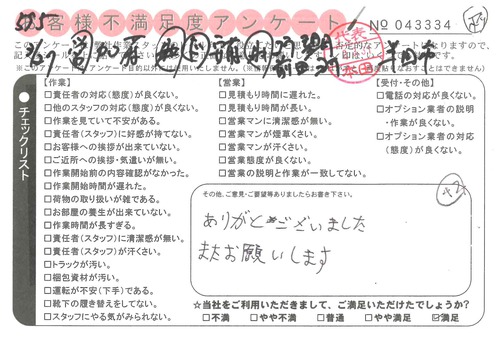 お客様不満足度アンケート
No 043334
チェックリスト
【作業】
□責任者の対応(態度)が良くない。
□他のスタッフの対応(態度)が良くない。
□作業を見ていて不安がある。
□責任者(スタッフ)に好感が持てない。
□お客様への挨拶が出来ていない。
□ご近所への挨拶・気遣いが無い。
□作業開始前の内容確認がなかった。
□作業開始時間が遅れた。
□荷物の取り扱いが雑である。
□お部屋の養生が出来ていない。
□作業時間が長すぎる。
□責任者(スタッフ)に清潔感が無い。
□責任者(スタッフ)が汗くさい。
□トラックが汚い。
□梱包資材が汚い。
□運転が不安(下手)である。
□靴下の履き替えをしてない。
□スタッフにやる気がみられない。
【営業】
□見積もり時間に遅れた。
□見積もり時間が長い。
□営業マンに清潔感が無い。
□営業マンが煙草くさい。
□営業マンが汗くさい。
□営業態度が良くない。
□営業の説明と作業が一致してない。
【受付・その他】
□電話の対応が良くない。
□オプション業者の説明
・作業が良くない。
□オプション業者の対応
(態度)が良くない。
その他、ご意見・ご要望等ありましたらお書き下さい。
ありがとございました
またお願いします
☆当社をご利用いただきまして、ご満足いただけたでしょうか?
□不満 □やや不満 □普通 □やや満足 ☑満足